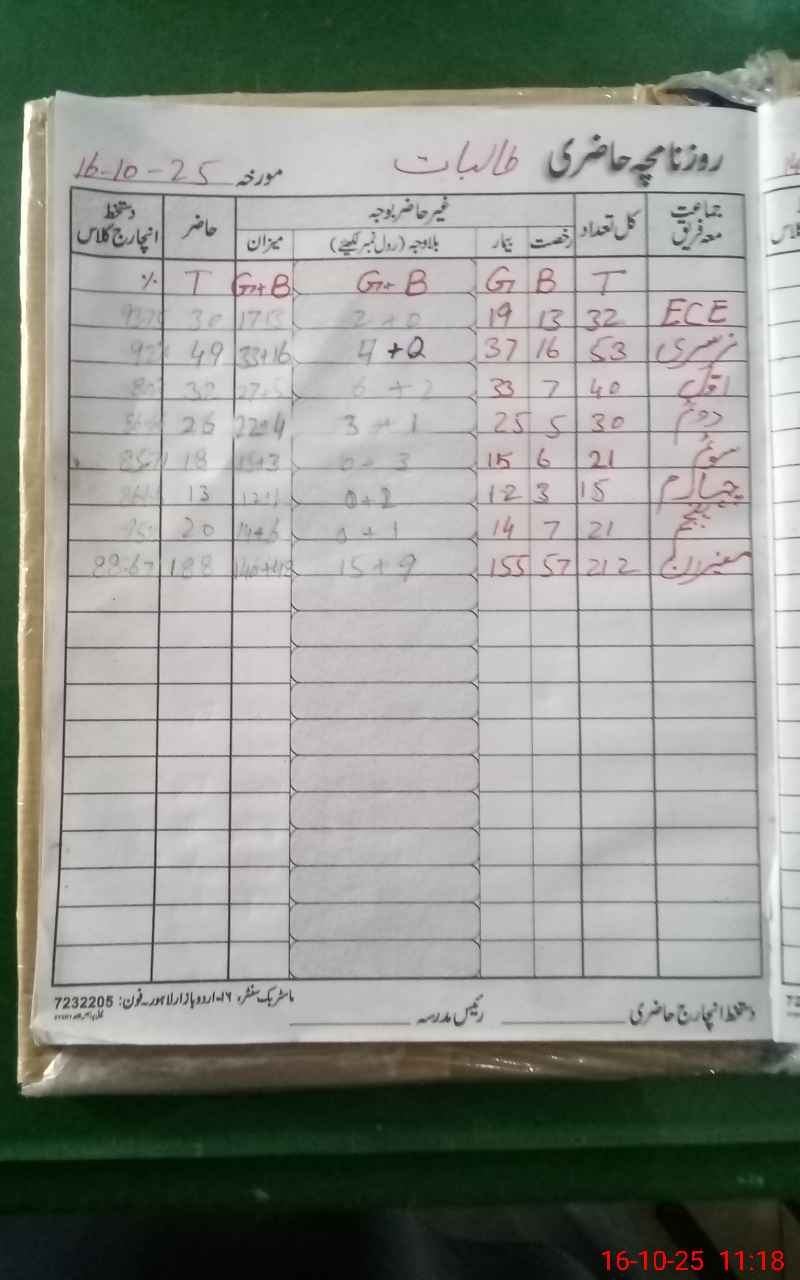 روزنامچہ حاضری طالبات مورخہ 16-10-25
جماعت معہ فریق کل تعداد غیر حاضر بوجہ حاضر دستخط انچارج کلاس
رخصت بیمار بلاوجہ (رول نمبر لکھیئے) میزان
T B G G+B G+B T %
ECE 32 13 19 2+0 17 13 30
نرسری 53 16 37 4+0 33+16 49
اول 40 7 33 6+2 27+5 32
دوئم 30 5 25 3+1 22+4 26
سوئم 21 6 15 0+3 15+3 18
چہارم 15 3 12 0+2 13
پنجم 21 7 14 0+1 14+6 20
میزان 212 57 155 15+9 188 88.67
دستخط انچارج حاضری رئیس مدرسہ
ماسٹر بک سنٹر، ۱۶-اردو بازار لاہور۔فون: 7232205
16-10-25 11:18